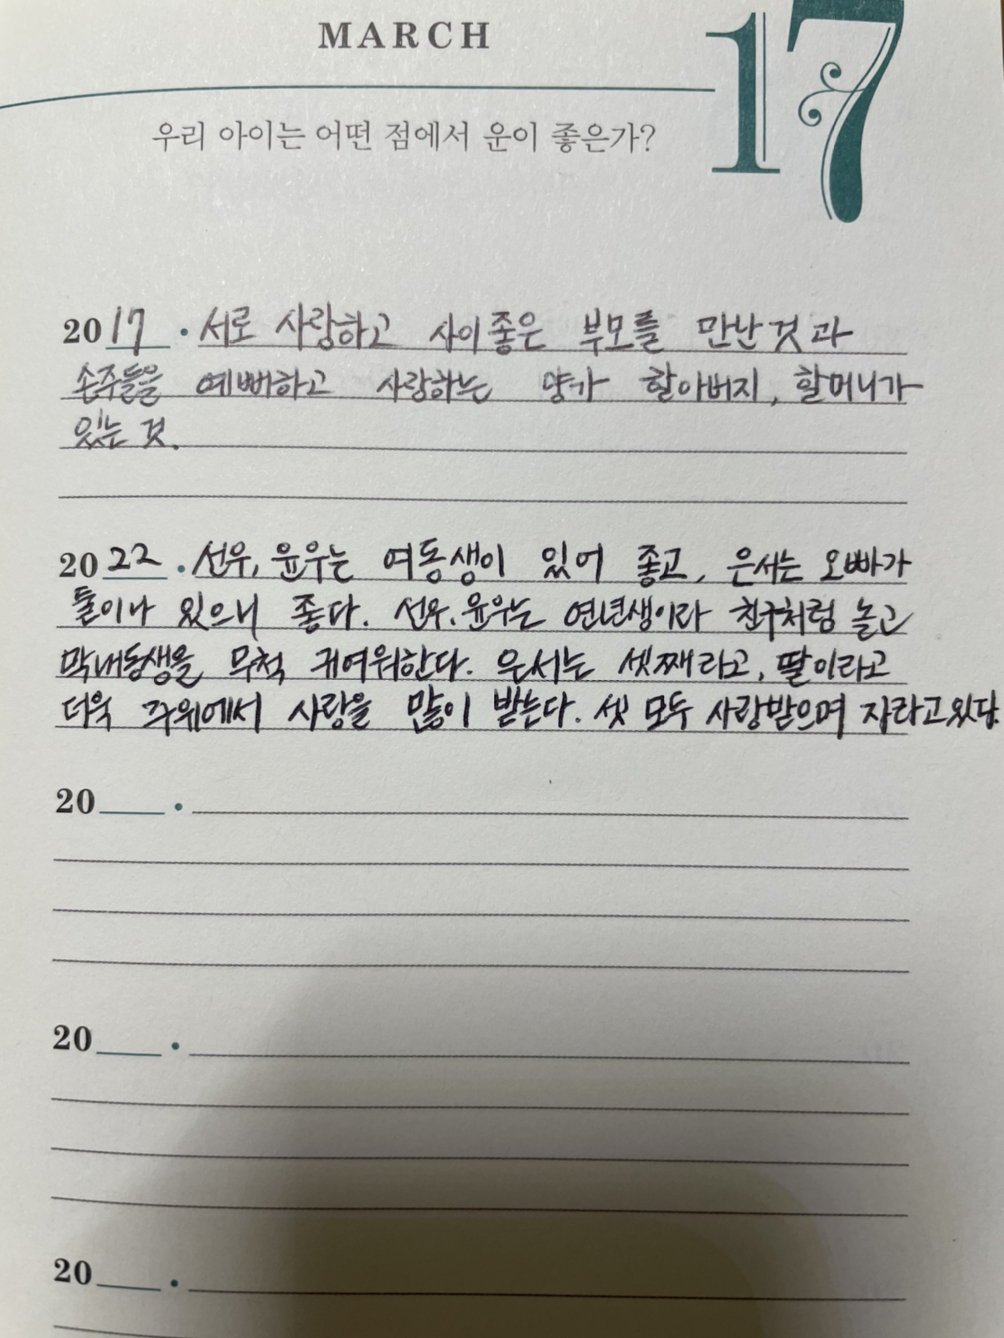 MARCH
17
우리 아이는 어떤 점에서 운이 좋은가?
2017 · 서로 사랑하고 사이좋은 부모를 만난것과
손주들을 예뻐하고 사랑하는 양가 할아버지, 할머니가
있는 것.
2022 · 선우, 윤우는 여동생이 있어 좋고, 은서는 오빠가
둘이나 있으니 좋다. 선우, 윤우는 연년생이라 친구처럼 놀고
막내동생을 무척 귀여워한다. 은서는 셋째라고, 딸이라고
더욱 주위에서 사랑을 많이 받는다. 셋 모두 사랑받으며 자라고있다
20 ·
20 ·
20 ·